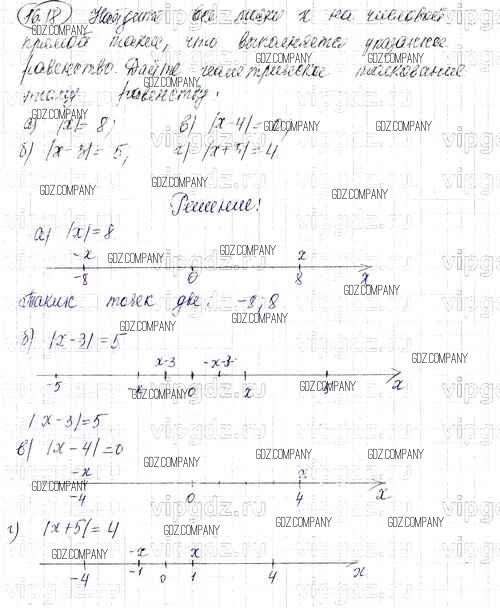 № 18 Найдите все точки x на числовой
прямой такие, что выполняется указанное
равенство. Дайте геометрическое толкование
этому равенству:
а) |x| = 8; в) |x-4| = 0;
б) |x-3| = 5; г) |x+5| = 4
Решение:
а) |x| = 8
-x x
-8 0 8 x
Таких точек две: -8; 8.
б) |x-3| = 5
x-3 -x-3
-5 0 x x
|x-3| = 5
в) |x-4| = 0
-x x
-4 0 4 x
г) |x+5| = 4
-x x
-4 -1 0 1 4 x
GDZ.COMPANY
vipgdz.ru